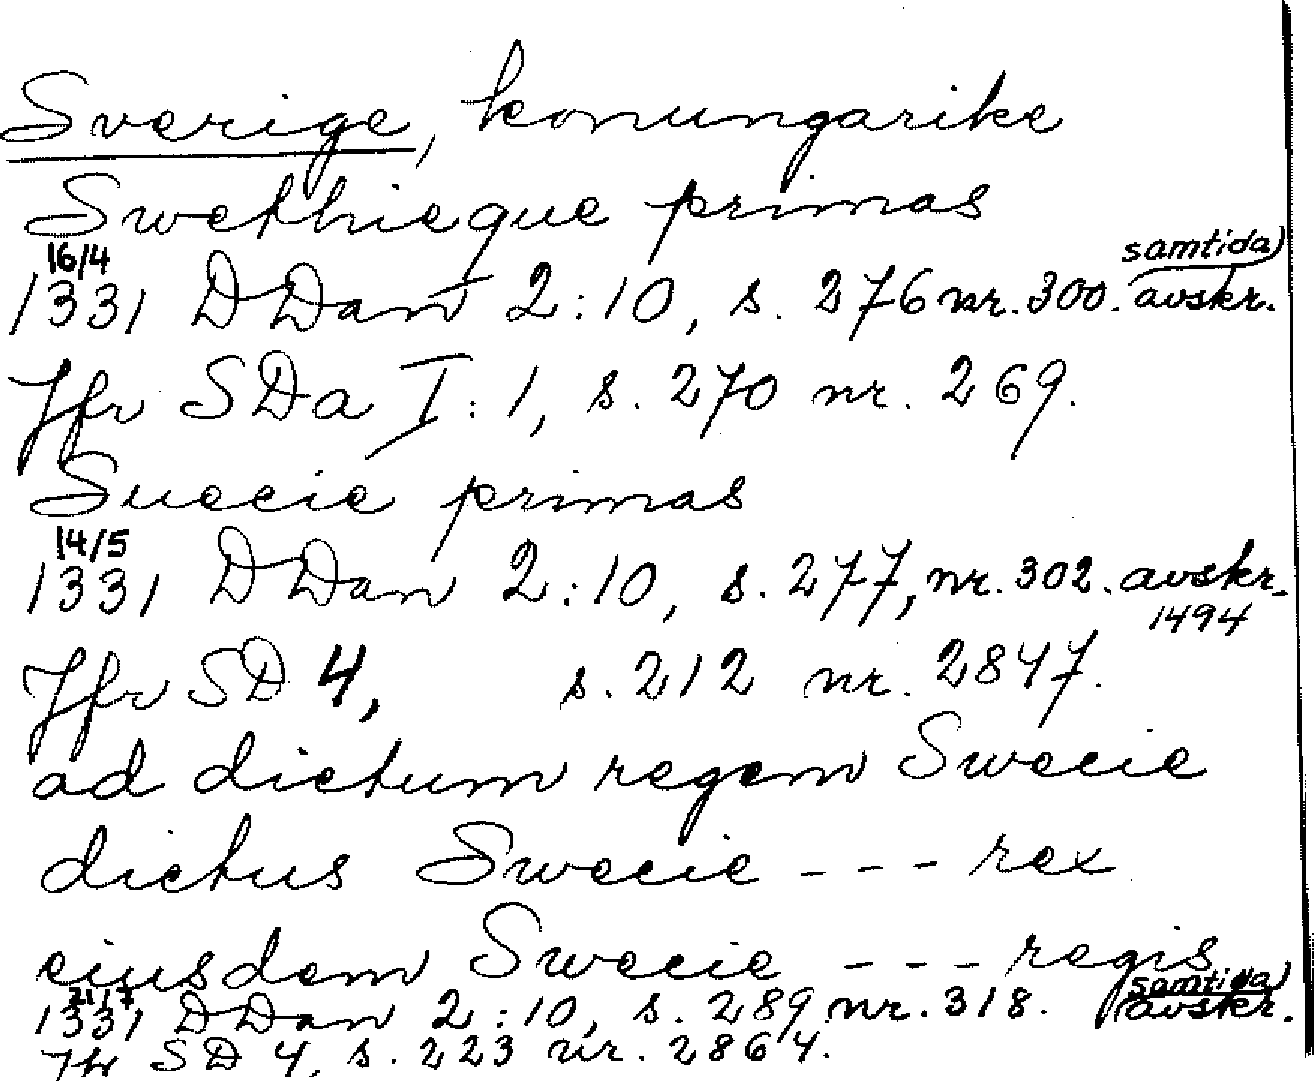 Sverige, konungarike
Swethieque primas
16/4
samtida
1331 DDan 2:10, s. 276 nr. 300. avskr.
Jfr SDa I:1, s. 270 nr. 269.
Suecie primas
14/5
1331 DDan 2:10, s. 277, nr. 302. avskr.
1494
Jfr SD 4, s. 212 nr. 2847.
ad dictum regem Swecie
dictus Swecie --- rex
eiusdem Swecie --- regis
21/7
samtida
1331 DDan 2:10, s. 289 nr. 318. avskr.
Jfr SD 4, s. 223 nr. 2864.